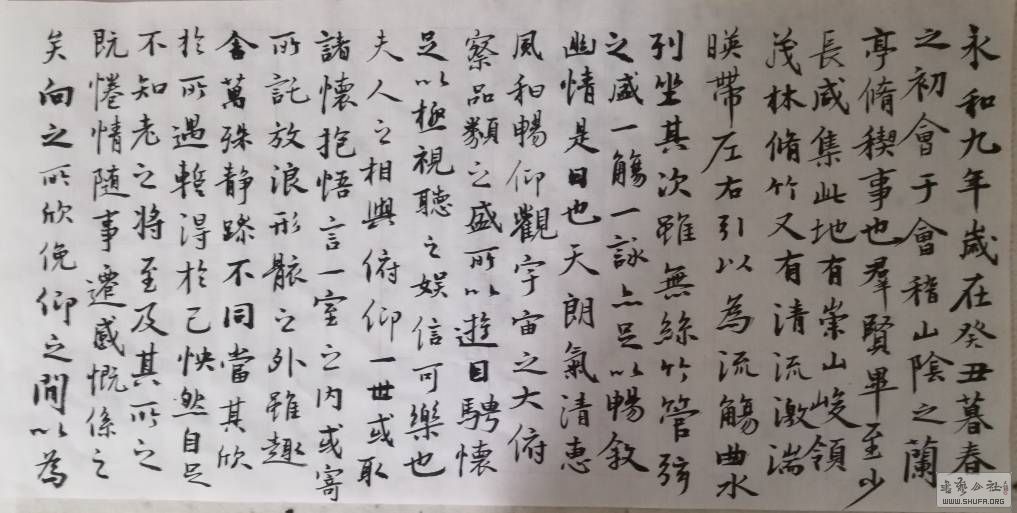 永和九年歲在癸丑暮春
之初會于會稽山陰之蘭
亭脩稧事也羣賢畢至少
長咸集此地有崇山峻領
茂林脩竹又有清流激湍
暎帶左右引以為流觴曲水
列坐其次雖無絲竹管弦
之盛一觴一詠亦足以暢敘
幽情是日也天朗氣清惠
風和暢仰觀宇宙之大俯
察品類之盛所以遊目騁懷
足以極視聽之娛信可樂也
夫人之相與俯仰一世或取
諸懷抱悟言一室之内或寄
所託放浪形骸之外雖趣
舍萬殊静躁不同當其欣
於所遇暫得於己怏然自足
不知老之將至及其所之
既惓情随事遷感慨係之
矣向之所欣俛仰之閒以為
書藝公社
WWW.SHUFA.ORG